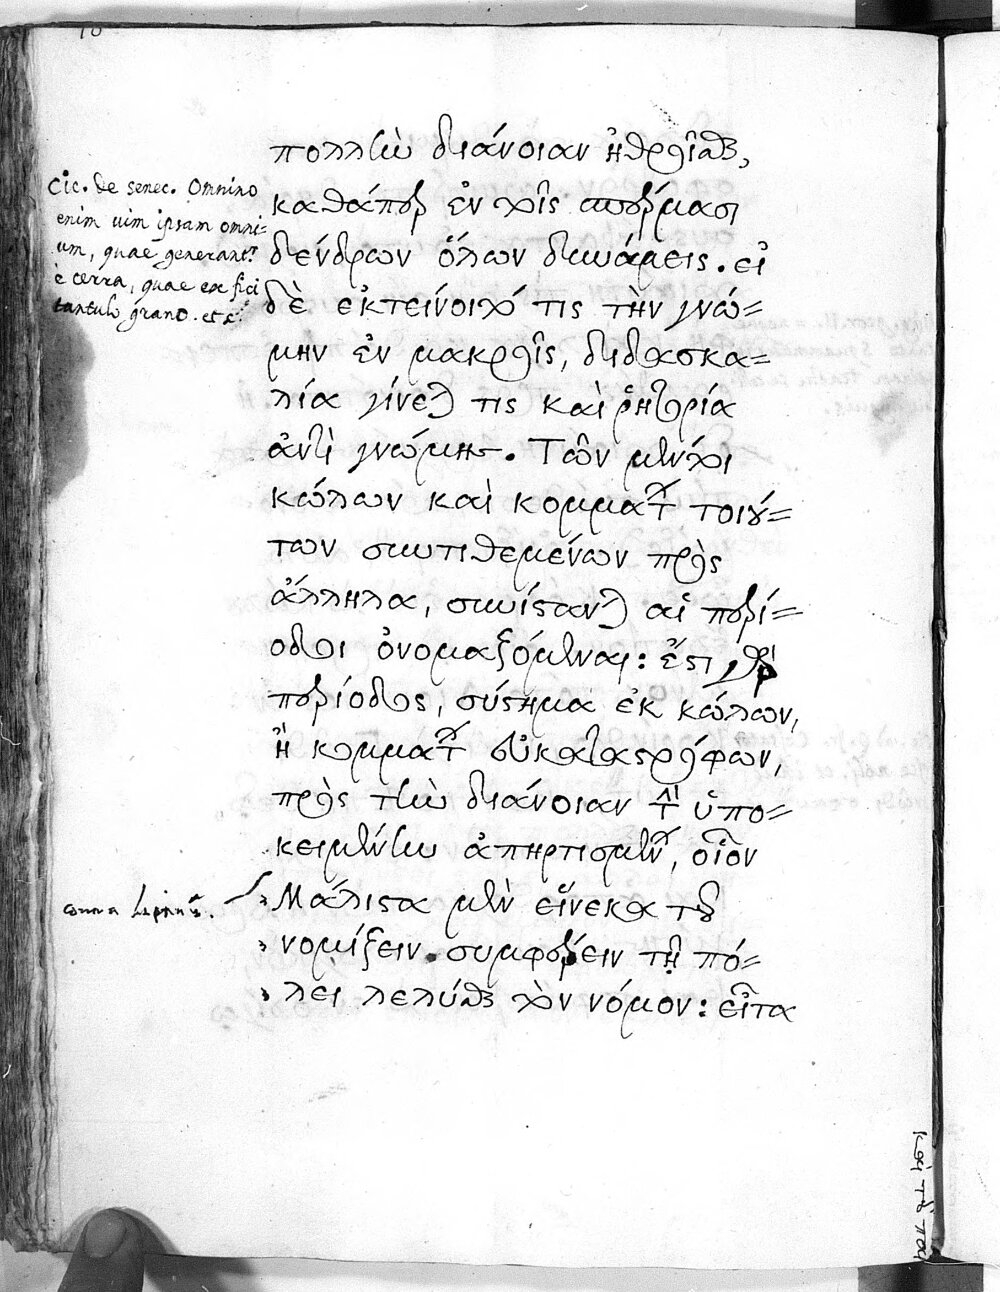 πολλὴν διάνοιαν ἠθροῖσθαι,
καθάπερ ἐν τοῖς σπέρμασι
δένδρων ὅλων δυνάμεις. εἰ
δὲ ἐκτείνοιτό τις τὴν γνώ=
μην ἐν μακροῖς, διδασκα=
λία γίνεται τις καὶ ῥητορία
ἀντὶ γνώμης. Τῶν μέντοι
κώλων καὶ κομμάτων τοιού=
των συντιθεμένων πρὸς
ἄλληλα, συνίστανται αἱ περί=
οδοι ὀνομαζόμεναι: ἔστι γὰρ
περίοδος, σύστημα ἐκ κώλων,
ἢ κομμάτων εὐκαταστρόφων,
πρὸς τὴν διάνοιαν τὴν ὑπο=
κειμένην ἀπηρτισμένον, οἷον
Μάλιστα μὲν εἵνεκα τοῦ
νομίζειν συμφέρειν τῇ πό=
λει λελύσθαι τὸν νόμον: εἶτα
Cic. de senec. Omnino
enim uim ipsam omni=
um, quae generantur
è terra, quae ex fici
tantulo grano. etc.
contra Leptinē.
καὶ τοῦ